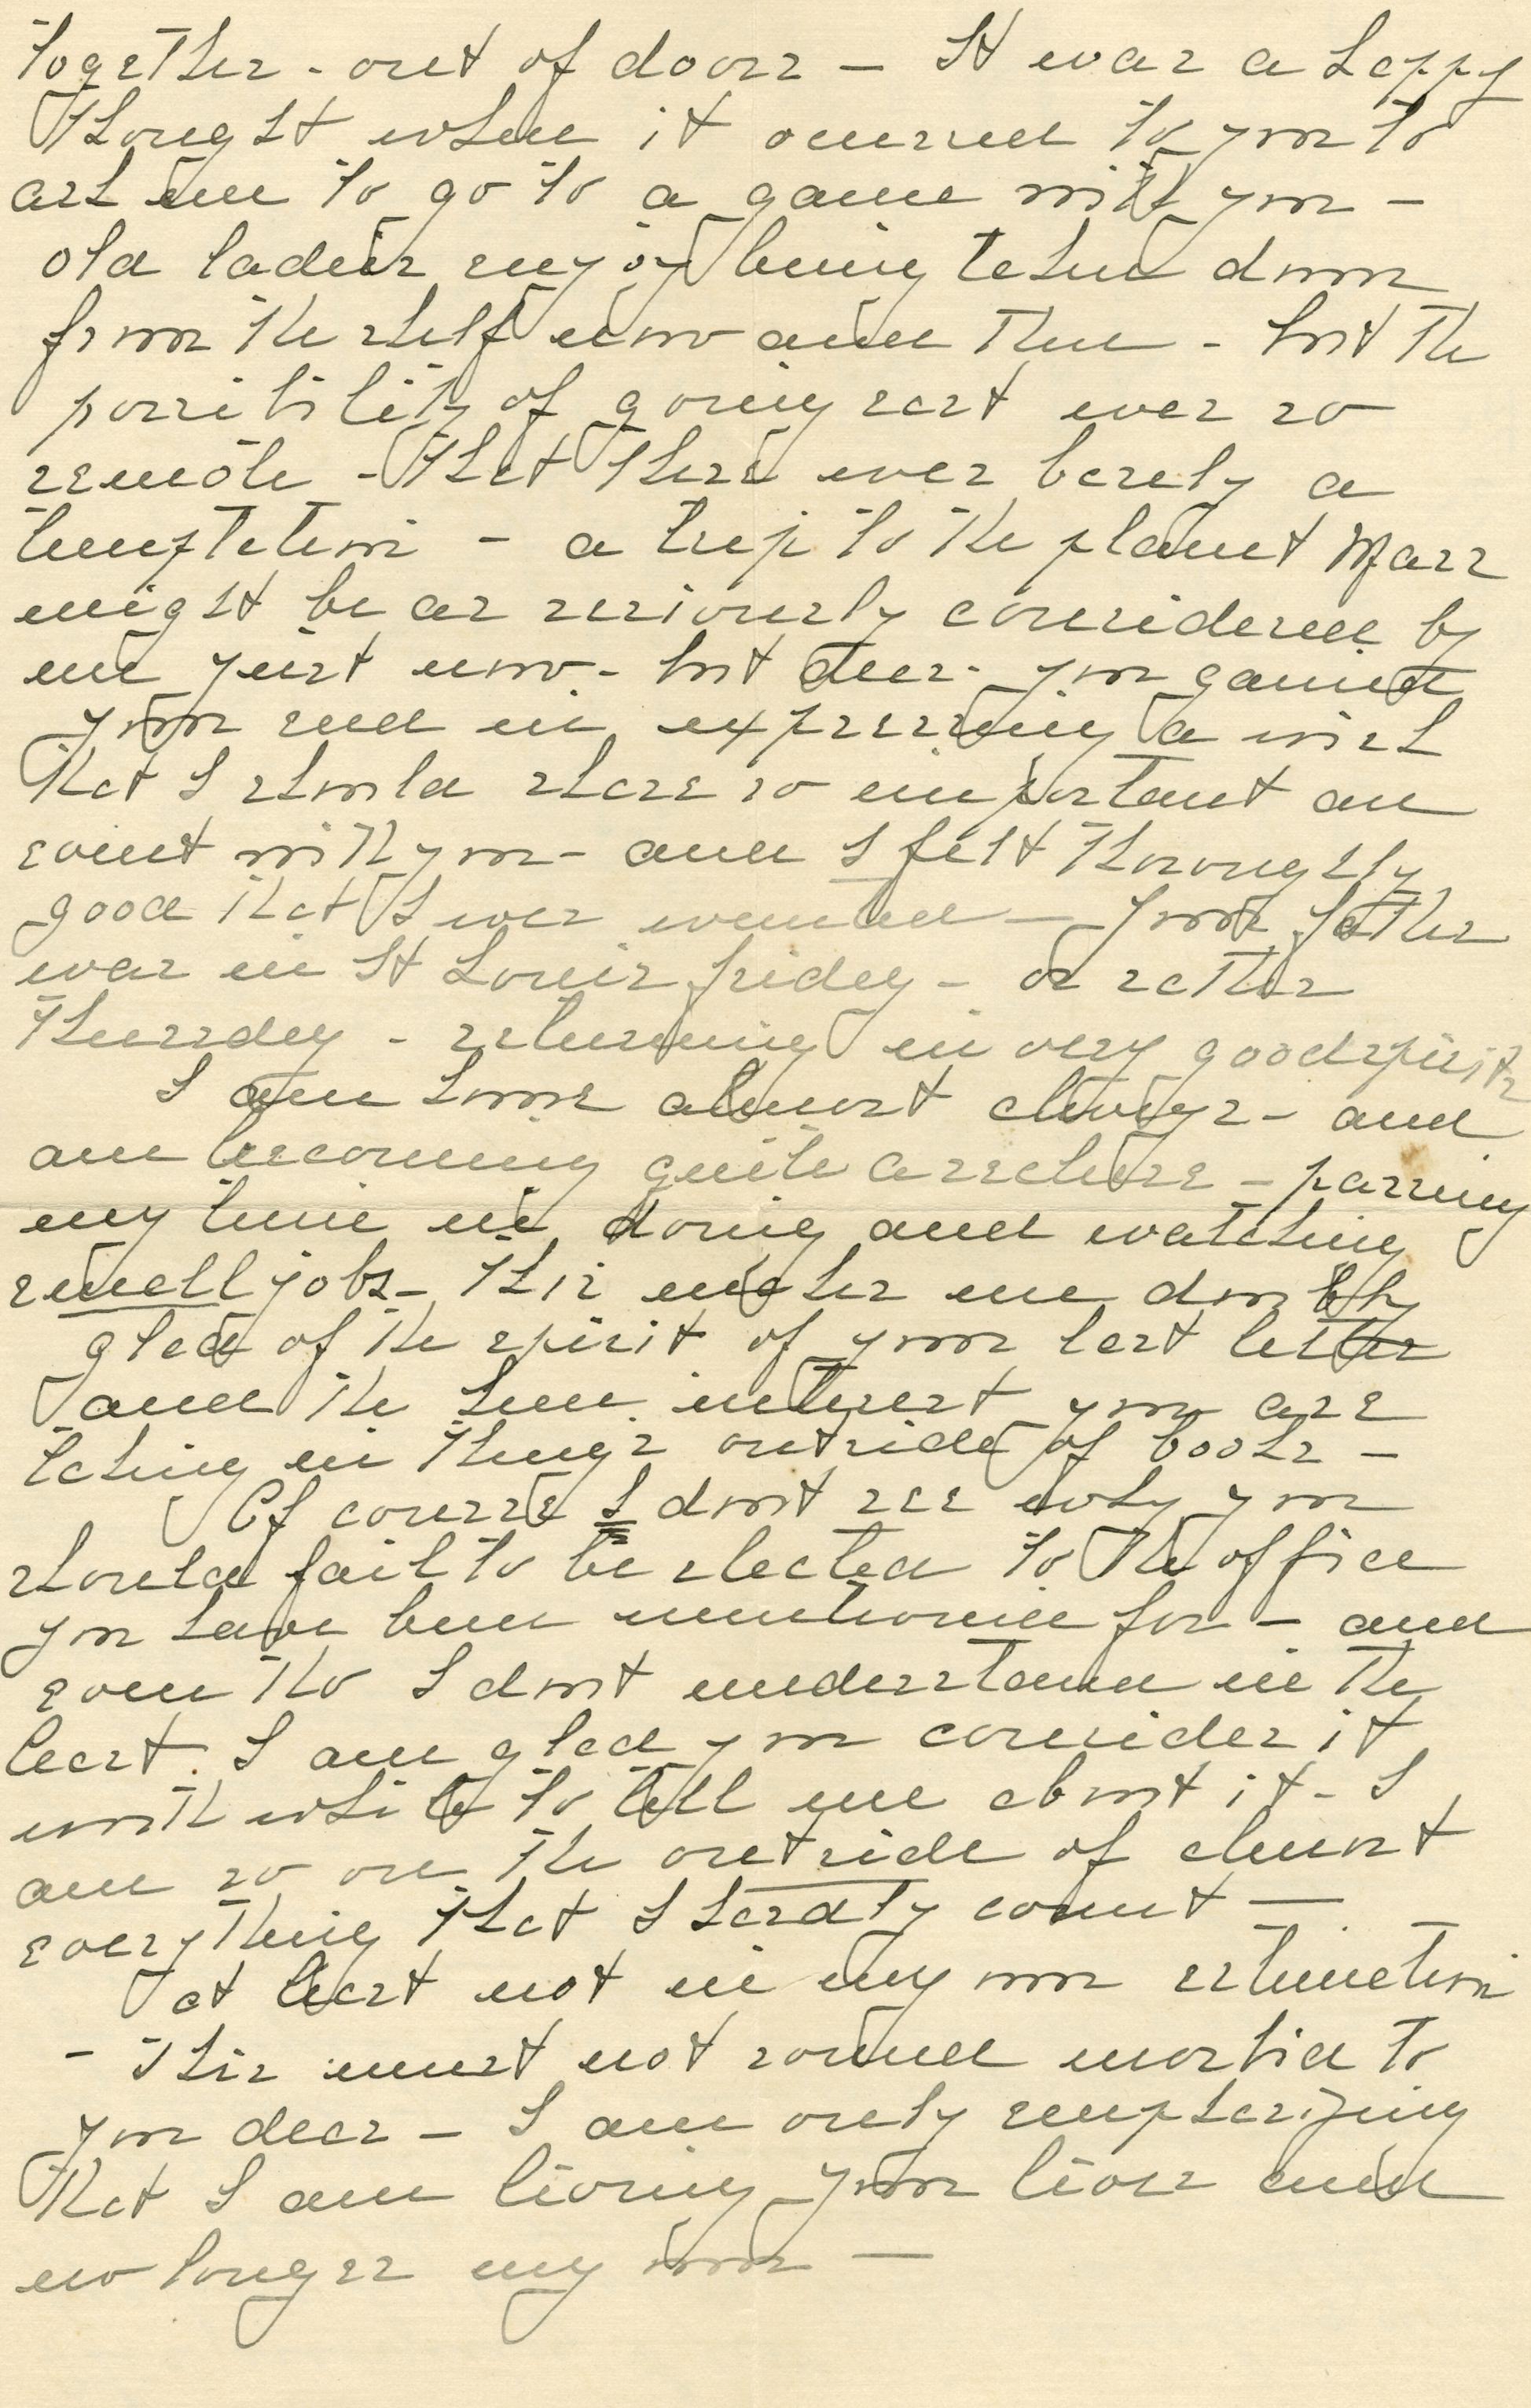 together - out of doors - It was a happy
thought when it occurred to you to
ask me to go to a game with you -
old ladies enjoy being taken down
from the shelf now and then - but the
possibility of going east was so
remote - that there was barely a
temptation - a trip to the planet Mars
might be as seriously considered by
me just now - but dear - you gained
your end in expressing a wish
that I should share so important an
event with you - and I felt thoroughly
good that I was wanted - Your father
was in St Louis friday - or rather
Thursday - returning in very good spirits
I am home almost always - and
am becoming quite a recluse - passing
my time in doing and watching
small jobs - This makes me doubly
glad of the spirit of your last letter
and the keen interest you are
taking in things outside of books -
Of course I dont see why you
should fail to be elected to the office
you have been mentioned for - and
even tho I dont understand in the
least I am glad you consider it
worth while to tell me about it - I
am so on the outside of almost
everything that I hardly count -
at least not in my own estimation
- This must not sound morbid to
you dear - I am only emphasizing
that I am living your lives and
no longer my own -